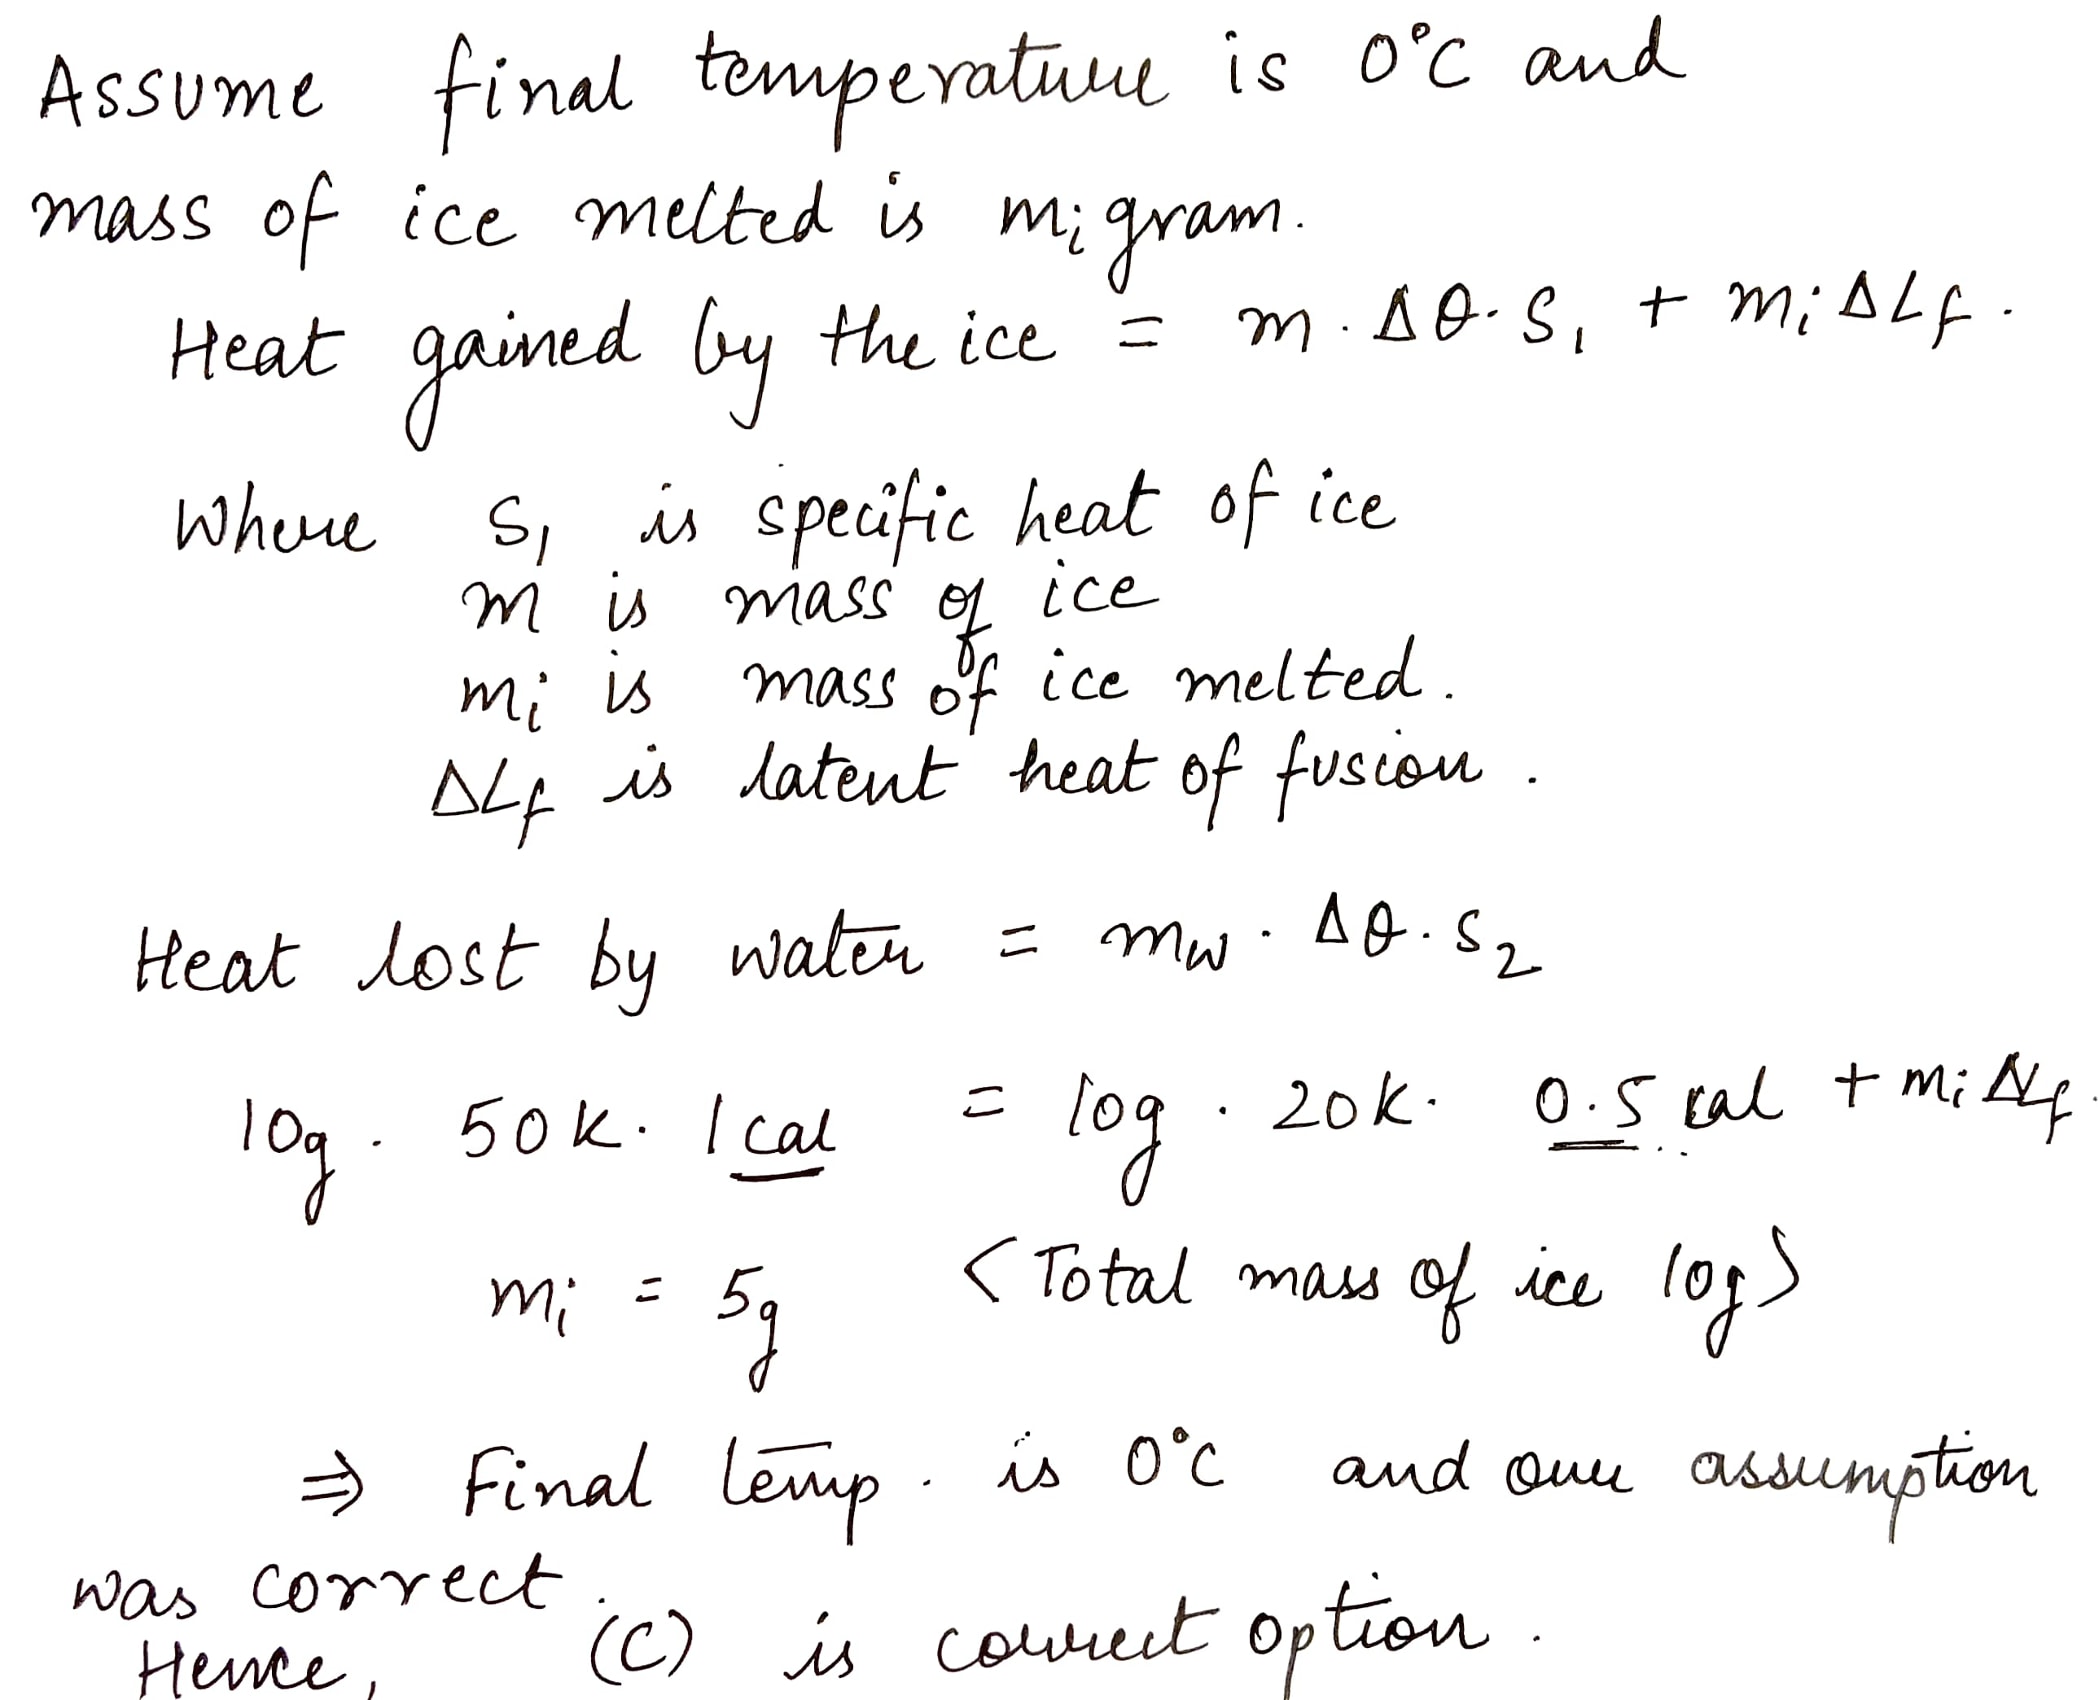 Assume final temperature is 0°C and
mass of ice melted is mᵢ gram.
Heat gained by the ice = m . Δθ . S₁ + mᵢ ΔLf .
Where S₁ is specific heat of ice
m is mass of ice
mᵢ is mass of ice melted.
ΔLf is latent heat of fusion .
Heat lost by water = mw . Δθ . S₂
10g . 50K . 1 cal = 10g . 20K . 0.5 cal + mᵢ ΔLf .
mᵢ = 5g < Total mass of ice 10g >
⇒ Final temp . is 0°C and our assumption
was correct .
Hence, (C) is correct option .